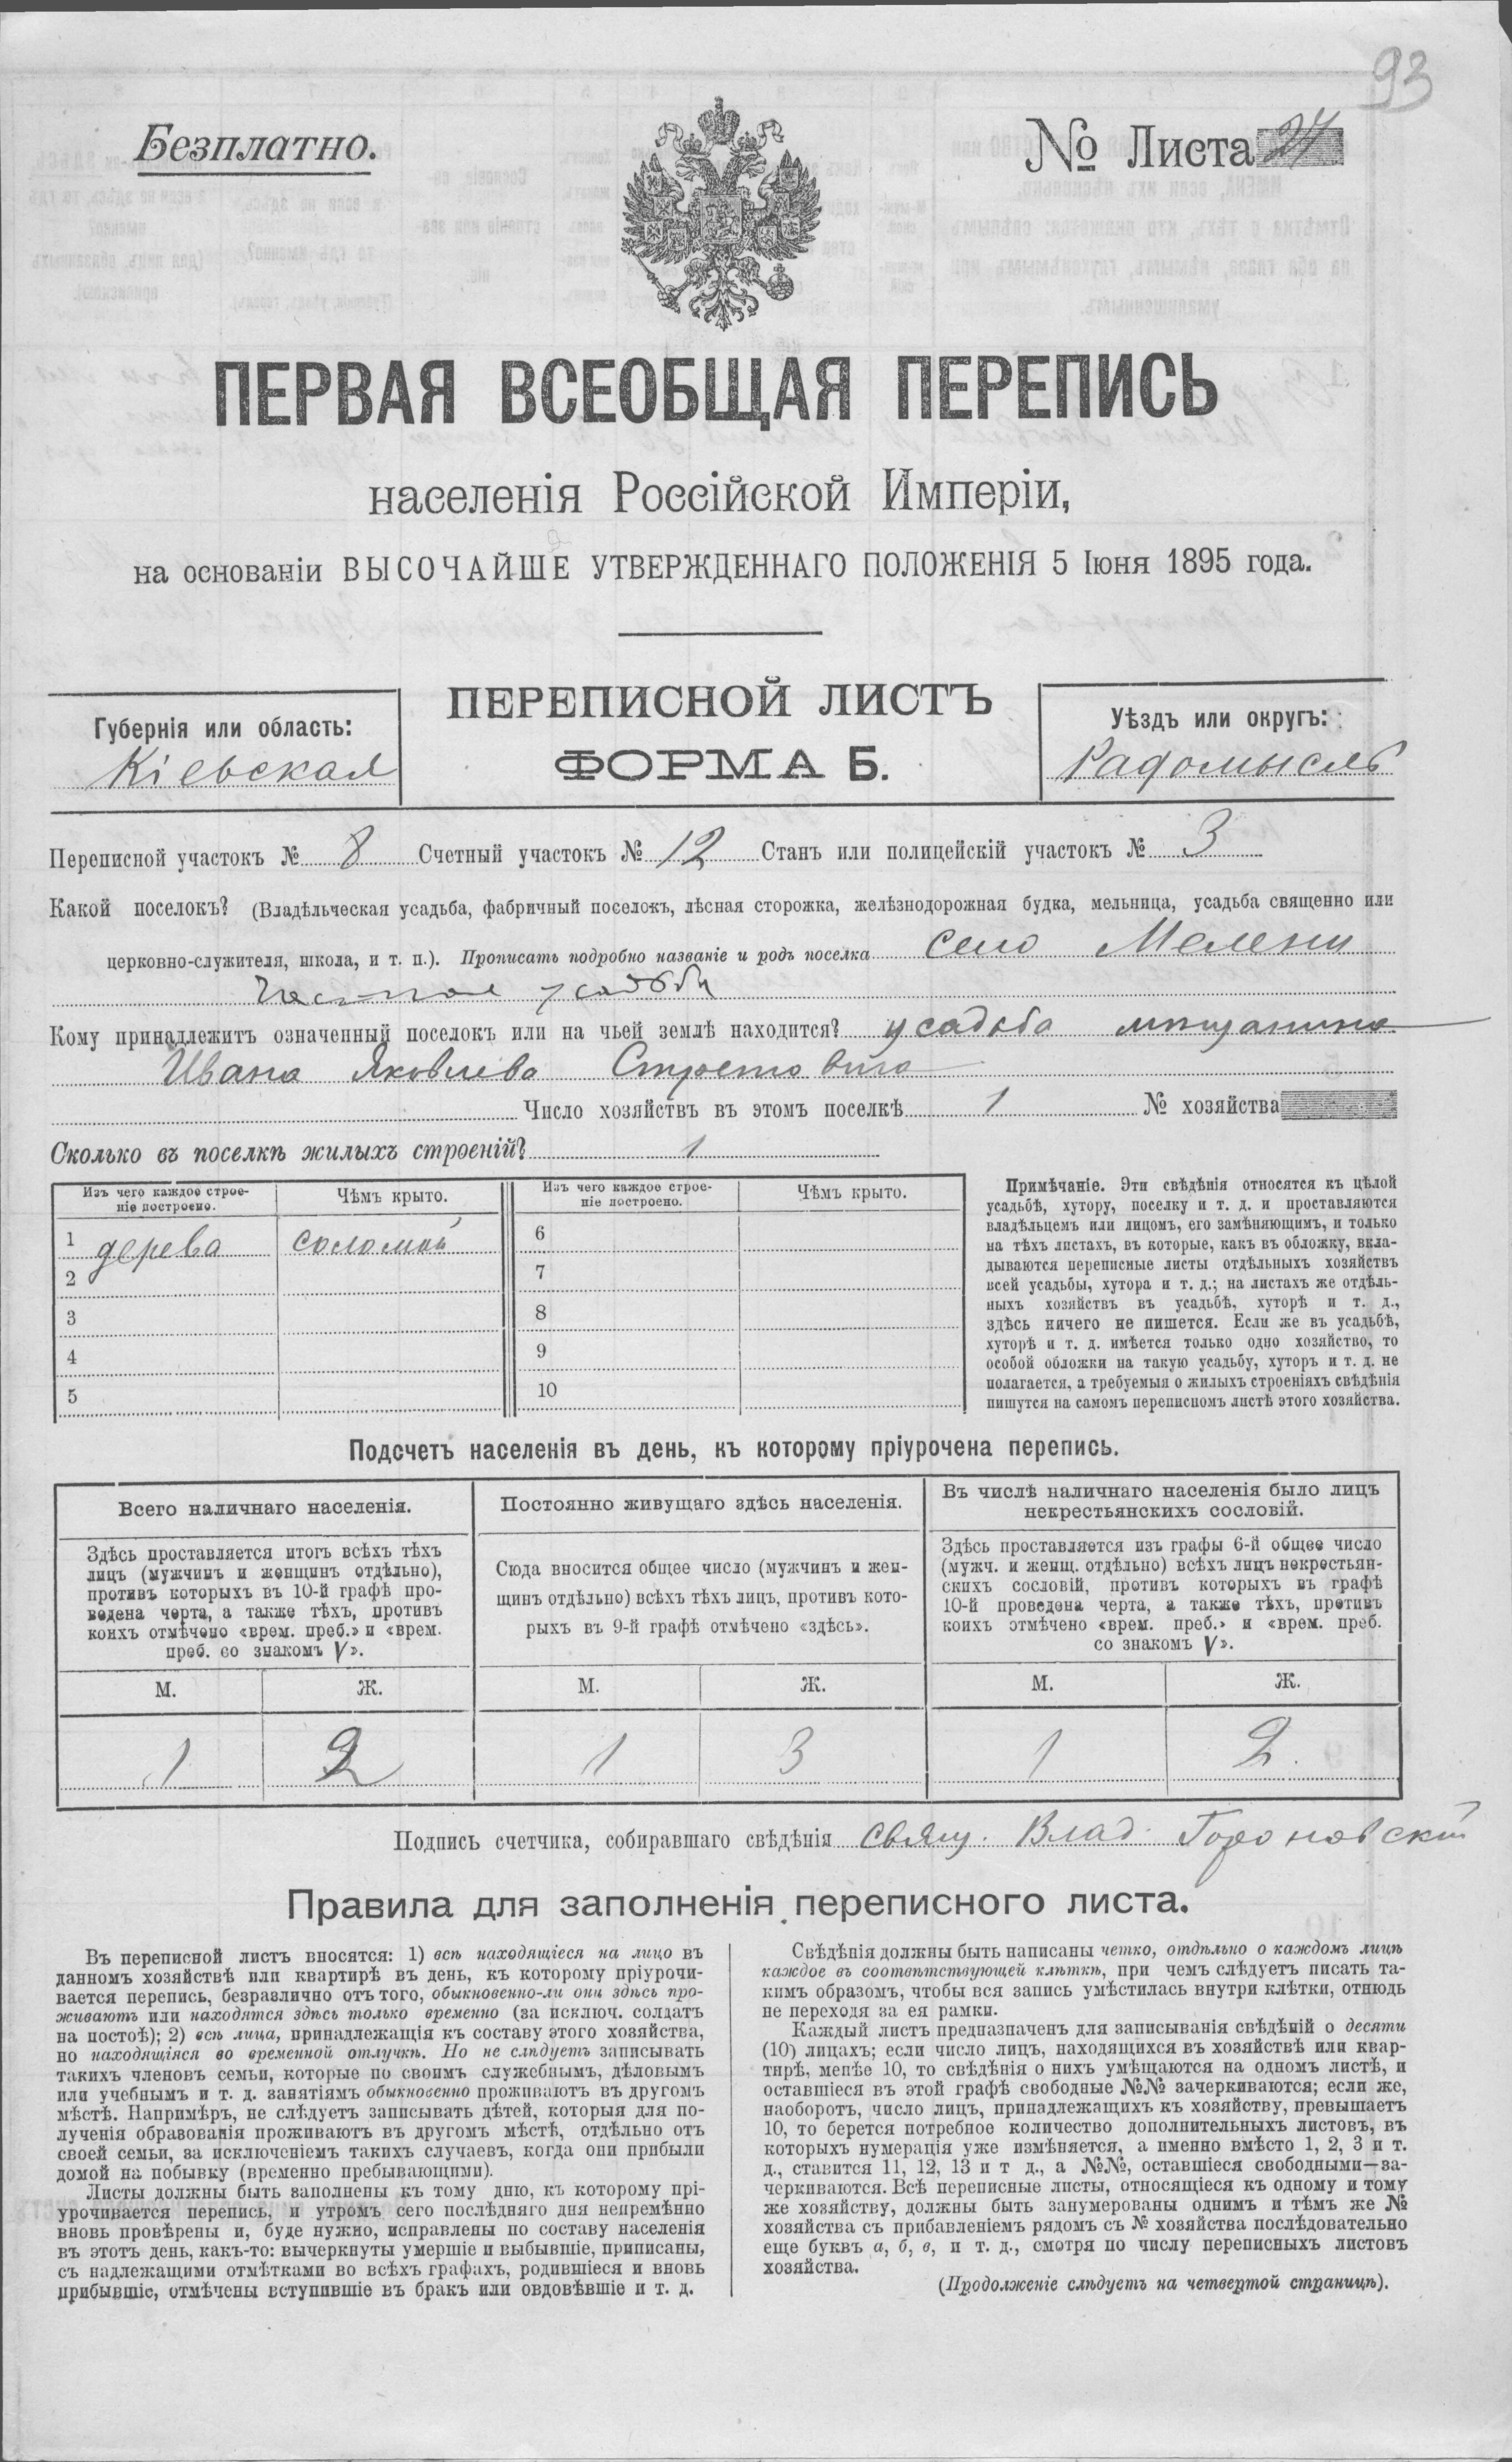 93
Безплатно.
№ Листа 24
ПЕРВАЯ ВСЕОБЩАЯ ПЕРЕПИСЬ
населенія Россійской Имперіи,
на основаніи ВЫСОЧАЙШЕ УТВЕРЖДЕННАГО ПОЛОЖЕНІЯ 5 Іюня 1895 года.
Губернія или область:
Кіевская
ПЕРЕПИСНОЙ ЛИСТЪ
ФОРМА Б.
Уѣздъ или округъ:
Радомысль
Переписной участокъ № 8 Счетный участокъ № 12 Станъ или полицейскій участокъ № 3
Какой поселокъ? (Владѣльческая усадьба, фабричный поселокъ, лѣсная сторожка, желѣзнодорожная будка, мельница, усадьба священно или
церковно-служителя, школа, и т. п.). Прописать подробно названіе и родъ поселка село Мелени
усадьба
Кому принадлежитъ означенный поселокъ или на чьей землѣ находится? усадьба мѣщанина
Ивана Яковлева
Число хозяйствъ въ этомъ поселкѣ 1 № хозяйства
Сколько въ поселкѣ жилыхъ строеній? 1
Изъ чего каждое строе-
ніе построено.
Чѣмъ крыто.
Изъ чего каждое строе-
ніе построено.
Чѣмъ крыто.
1 дерева соломой 6
2 7
3 8
4 9
5 10
Примѣчаніе. Эти свѣдѣнія относятся къ цѣлой
усадьбѣ, хутору, поселку и т. д. и проставляются
владѣльцемъ или лицомъ, его замѣняющимъ, и только
на тѣхъ листахъ, въ которые, какъ въ обложку, вкла-
дываются переписные листы отдѣльныхъ хозяйствъ
всей усадьбы, хутора и т. д.; на листахъ же отдѣль-
ныхъ хозяйствъ въ усадьбѣ, хуторѣ и т. д.,
здѣсь ничего не пишется. Если же въ усадьбѣ,
хуторѣ и т. д. имѣется только одно хозяйство, то
особой обложки на такую усадьбу, хуторъ и т. д. не
полагается, а требуемыя о жилыхъ строеніяхъ свѣдѣнія
пишутся на самомъ переписномъ листѣ этого хозяйства.
Подсчетъ населенія въ день, къ которому пріурочена перепись.
Всего наличнаго населенія.
Здѣсь проставляется итогъ всѣхъ тѣхъ
лицъ (мужчинъ и женщинъ отдѣльно),
противъ которыхъ въ 10-й графѣ про-
ведена черта, а также тѣхъ, противъ
коихъ отмѣчено «врем. преб.» и «врем.
преб. со знакомъ V».
М. Ж.
1 2
Постоянно живущаго здѣсь населенія.
Сюда вносится общее число (мужчинъ и жен-
щинъ отдѣльно) всѣхъ тѣхъ лицъ, противъ кото-
рыхъ въ 9-й графѣ отмѣчено «здѣсь».
М. Ж.
1 3
Въ числѣ наличнаго населенія было лицъ
некрестьянскихъ сословій.
Здѣсь проставляется изъ графы 6-й общее число
(мужч. и женщ. отдѣльно) всѣхъ лицъ некрестьян-
скихъ сословій, противъ которыхъ въ графѣ
10-й проведена черта, а также тѣхъ, противъ
коихъ отмѣчено «врем. преб.» и «врем. преб.
со знакомъ V».
М. Ж.
1 2.
Подпись счетчика, собиравшаго свѣдѣнія свящ. Влад. Гороновскій
Правила для заполненія переписного листа.
Въ переписной листъ вносятся: 1) всѣ находящіеся на лицо въ
данномъ хозяйствѣ или квартирѣ въ день, къ которому пріурочи-
вается перепись, безразлично отъ того, обыкновенно-ли они здѣсь про-
живаютъ или находятся здѣсь только временно (за исключ. солдатъ
на постоѣ); 2) всѣ лица, принадлежащія къ составу этого хозяйства,
но находящіяся во временной отлучкѣ. Но не слѣдуетъ записывать
такихъ членовъ семьи, которые по своимъ служебнымъ, дѣловымъ
или учебнымъ и т. д. занятіямъ обыкновенно проживаютъ въ другомъ
мѣстѣ. Напримѣръ, не слѣдуетъ записывать дѣтей, которыя для по-
лученія образованія проживаютъ въ другомъ мѣстѣ, отдѣльно отъ
своей семьи, за исключеніемъ такихъ случаевъ, когда они прибыли
домой на побывку (временно пребывающими).
Листы должны быть заполнены къ тому дню, къ которому прі-
урочивается перепись, и утромъ сего послѣдняго дня непремѣнно
вновь провѣрены и, буде нужно, исправлены по составу населенія
въ этотъ день, какъ-то: вычеркнуты умершіе и выбывшіе, приписаны,
съ надлежащими отмѣтками во всѣхъ графахъ, родившіеся и вновь
прибывшіе, отмѣчены вступившіе въ бракъ или овдовѣвшіе и т. д.
Свѣдѣнія должны быть написаны четко, отдѣльно о каждомъ лицѣ
каждое въ соотвѣтствующей клѣткѣ, при чемъ слѣдуетъ писать та-
кимъ образомъ, чтобы вся запись умѣстилась внутри клѣтки, отнюдь
не переходя за ея рамки.
Каждый листъ предназначенъ для записыванія свѣдѣній о десяти
(10) лицахъ; если число лицъ, находящихся въ хозяйствѣ или квар-
тирѣ, менѣе 10, то свѣдѣнія о нихъ умѣщаются на одномъ листѣ, и
оставшіеся въ этой графѣ свободные №№ зачеркиваются; если же,
наоборотъ, число лицъ, принадлежащихъ къ хозяйству, превышаетъ
10, то берется потребное количество дополнительныхъ листовъ, въ
которыхъ нумерація уже измѣняется, а именно вмѣсто 1, 2, 3 и т.
д., ставится 11, 12, 13 и т д., а №№, оставшіеся свободными—за-
черкиваются. Всѣ переписные листы, относящіеся къ одному и тому
же хозяйству, должны быть занумерованы однимъ и тѣмъ же №
хозяйства съ прибавленіемъ рядомъ съ № хозяйства послѣдовательно
еще буквъ а, б, в, и т. д., смотря по числу переписныхъ листовъ
хозяйства.
(Продолженіе слѣдуетъ на четвертой страницѣ).